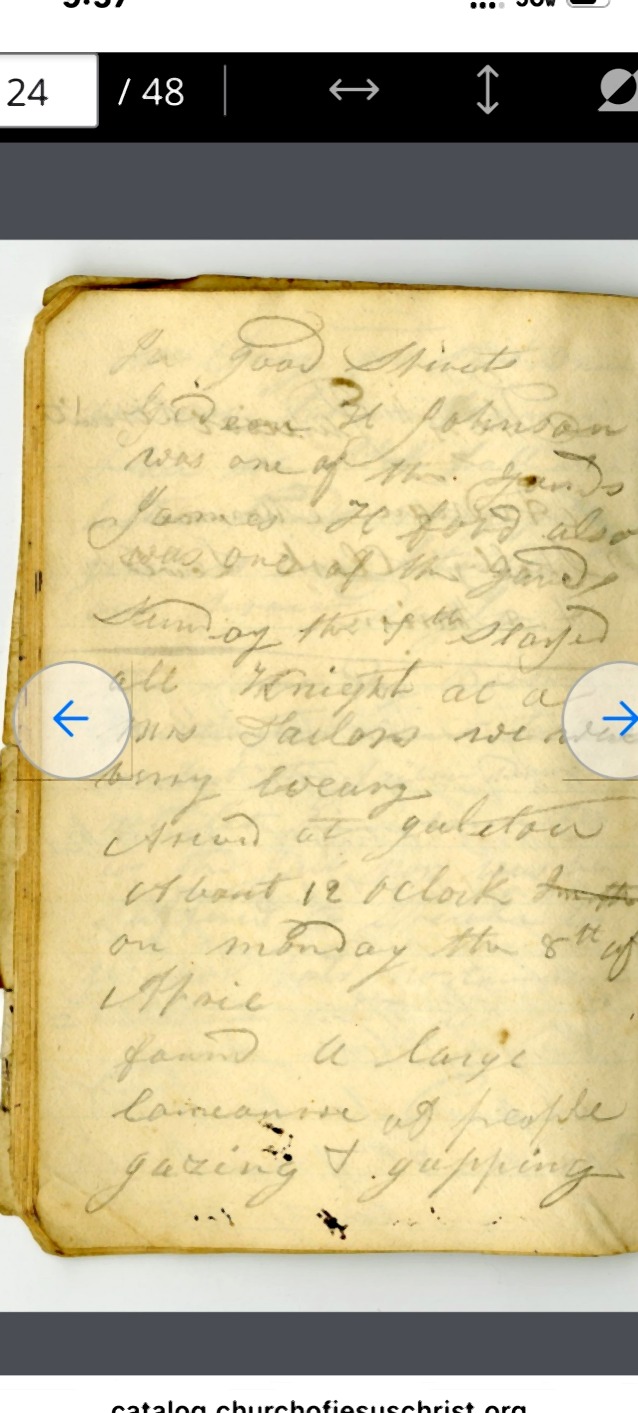 24 / 48
In good Spirits
Gideon H Johnson
was one of the gards
James H ford also
was one of the gards
Sunday the 7th stayed
all Knight at a
Mrs Tailors we were
verry weary
Arived at galeton
About 12 Oclock
on monday the 8th of
Apric
found a large
of people
gazing & gapping
catalog.churchofjesuschrist.org